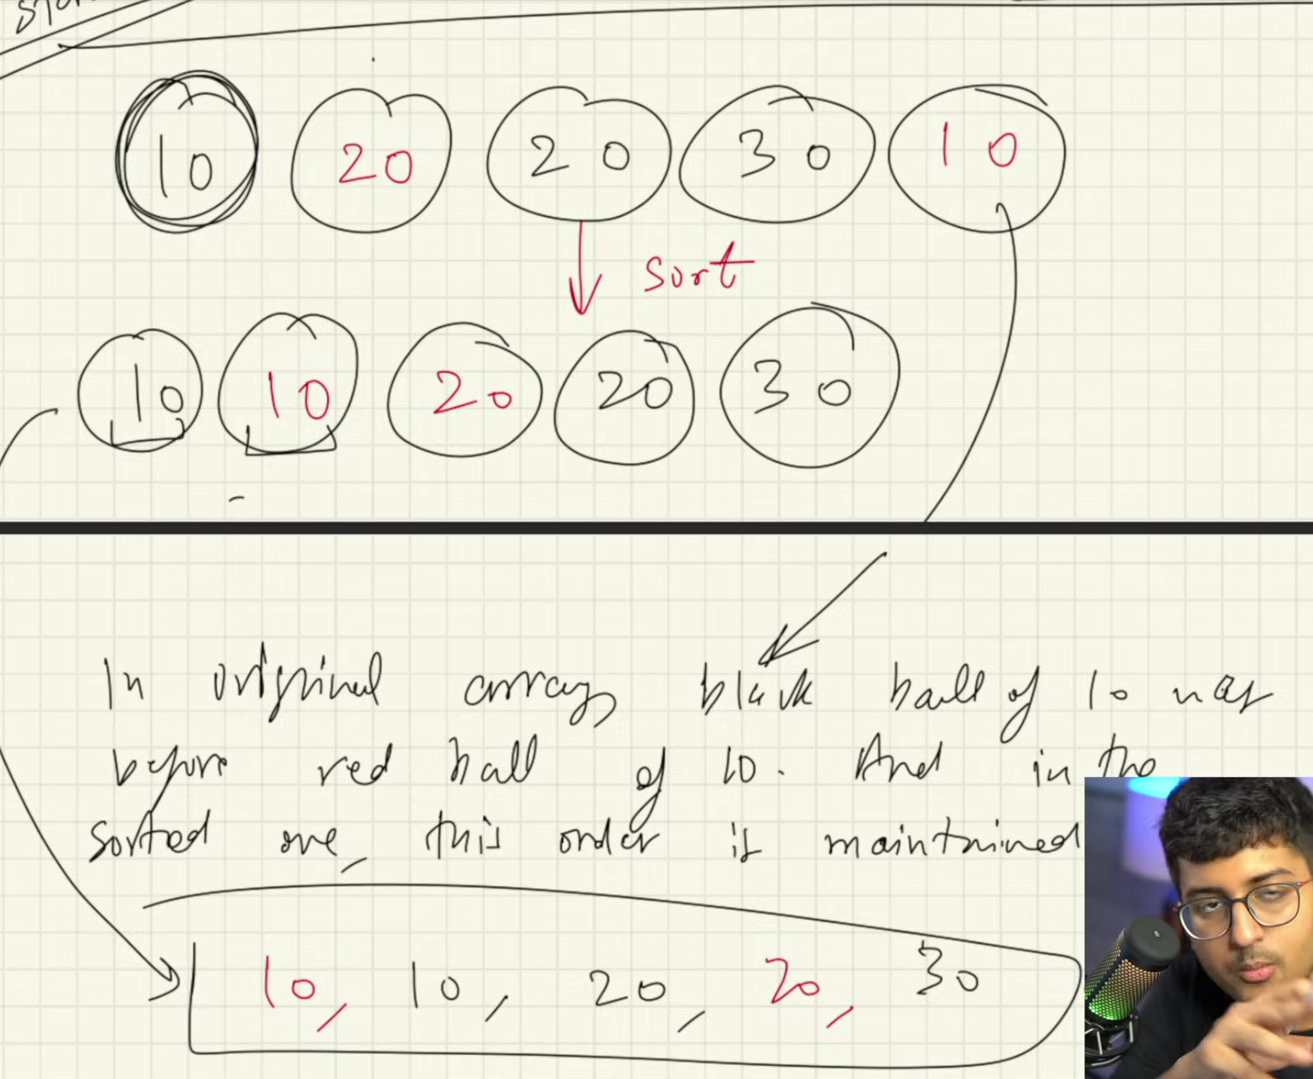 10 20 20 30 10
sort
10 10 20 20 30
In original array black ball of 10 was
before red ball of 10. And in the
sorted one, this order is maintained
10, 10, 20, 20, 30